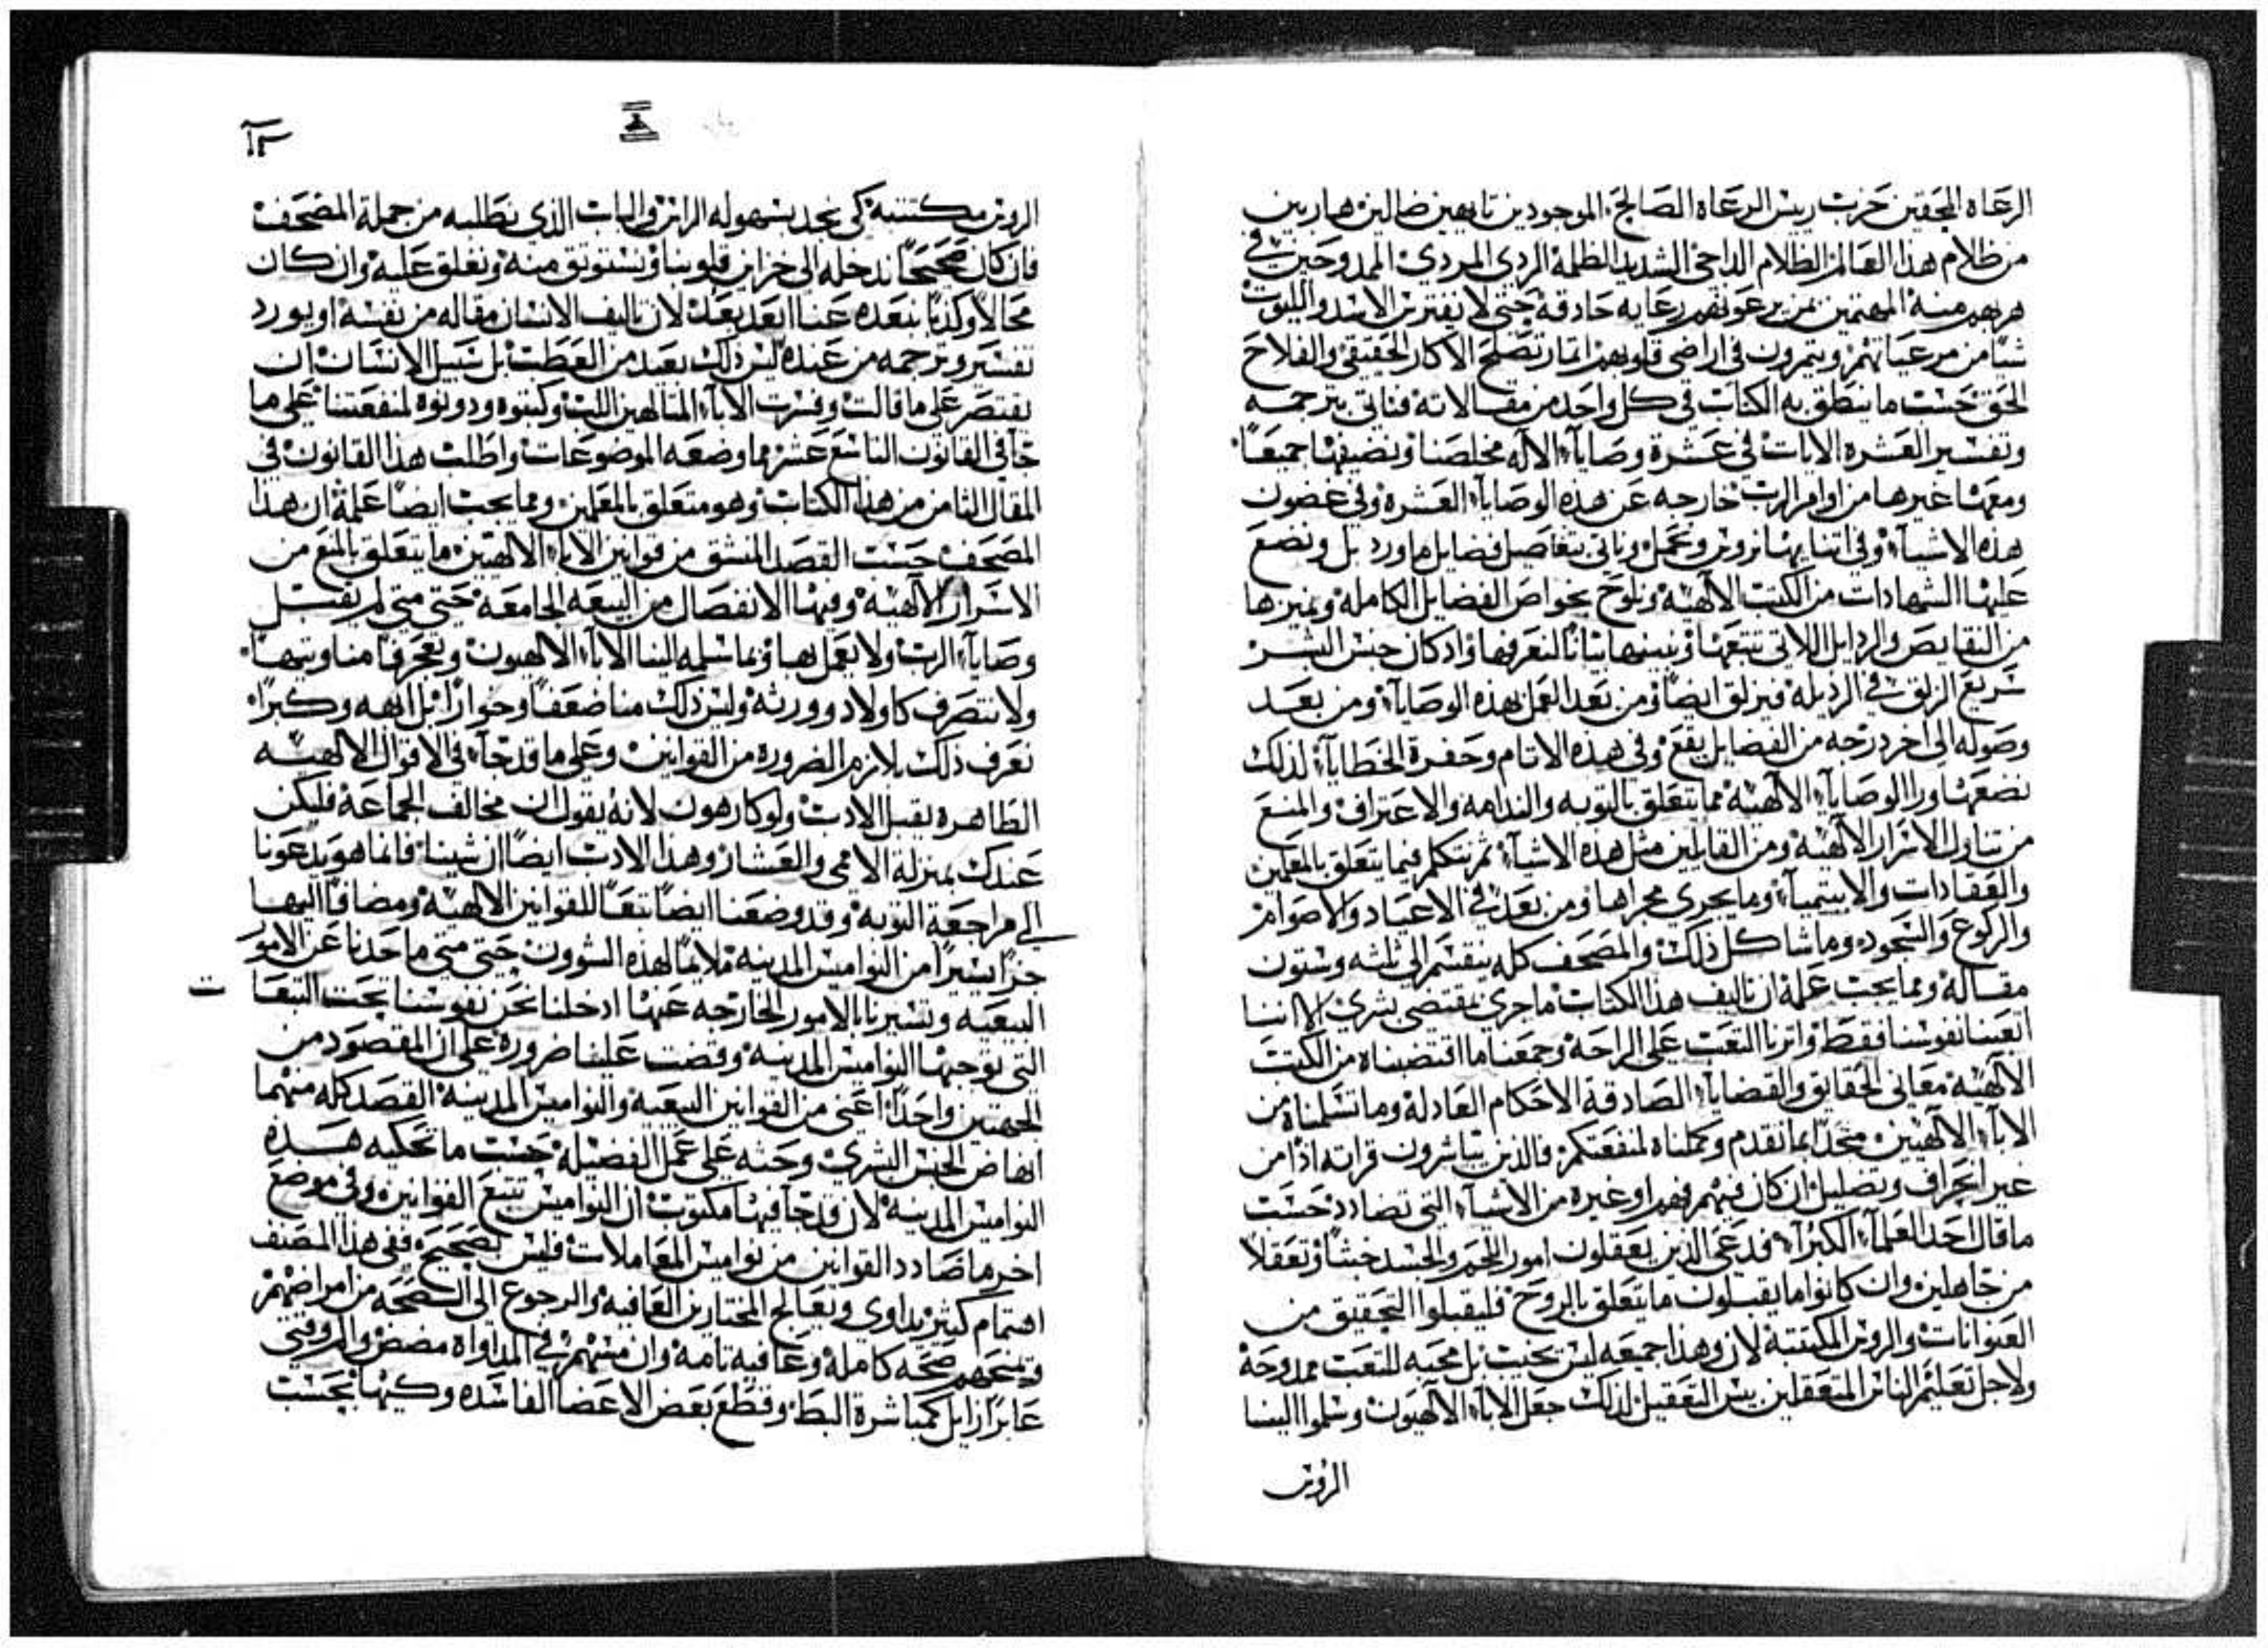 الرعاه المحقين حزب ريس الرعاه الصالح الموجودين تايهين ضالين هاربين
من ظلام هذا العالم الظلام الداجى الشديد الظلمة الردى المردى الممدوحين في
هربهم منه المهتمين بمن يرعونهم رعايه حادقه حتى لا يفترس الاسد والليوث
شيًا من مرعياتهم ويثمرون فى اراضى قلوبهم اثمار تصلح الاكار الحقيقى والفلاح
الحق حسب ما ينطق به الكتاب فى كل واحد من مقالاته فناتى بترجمه
وتفسير العشره الايات فى عشرة وصايا الاله مخلصنا ونضيفها جميعاً
ومعها غيرها من اوامر الرب خارجه عن هذه الوصايا العشره وفى غضون
هذه الاشيا وفى اثنايها نروس ونجمل وناتى بتفاصيل فضايل ما ورد بل ونضع
عليها الشهادات من الكتب الالهيه ونلوح بخواص الفضايل الكامله ونميزها
من النقايص والرذايل اللاتى تتبعها ونبينها بيانًا لنعرفها واذ كان جنس البشر
سريع الزلق في الرذيله فيزلق ايضًا ومن بعد العمل بهذه الوصايا ومن بعد
وصوله الى اخر درجه من الفضايل يقع وفى هذه الاثام وحفرة الخطايا لذلك
نضعها ورا الوصايا الالهيه مما يتعلق بالتوبه والندامه والاعتراف والمنع
من تناول الاسرار الالهيه ومن القايلين مثل هذه الاشيا ثم نتكلم فيما يتعلق بالمعلمين
والعقادات والابيتميا وما يجرى مجراها ومن بعد في الاعياد والاصوام
والركوع والسجود وما شاكل ذلك والمصحف كله ينقسم الى ثلثه وستون
مقاله ومما يجب علمه ان تاليف هذا الكتاب ما جرى بمقتضى بشرى الا اننا
اتعبنا نفوسنا فقط واثرنا التعب على الراحه وجمعنا ما اقتضبناه من الكتب
الالهيه معانى الحقايق والقضايا الصادقة الاحكام العادله وما تسلمناه من
الابا الالهيين متحدًا بما تقدم وعملناه لمنفعتكم فالذين يباشرون قراته اذا من
غير انحراف وتضليل ان كان فيهم فهم او غيره من الاشيا التى تضادد حسب
ما قال احد العلما الكبرا قد عى الذين يعقلون امور اللحم والجسد خبثًا وتعقلاً
من جاهلين وان كانوا ما يقبلون ما يتعلق بالروح فليقبلوا التحقيق من
العنوانات والروس المكتتبة لان وهذا جميعه ليس بخبث بل محبه للتعب ممدوحة
ولاجل تعليم الناس المتعقلين بيس التعقيل لذلك جعل الابا الالهيون وسلموا الينا
الروس
١٣
الروس مكتتبه كى يجد بسهوله الراس والباب الذى يطلبه من جملة المصحف
فان كان صحيحًا ندخله الى خزاين قلوبنا ونستوثق منه ونغلق عليه وان كان
محالاً وكذبًا نبعده عنا ابعد بعد لان تاليف الانسان مقاله من نفسه او يورد
تفسير وترجمه من عنده ليس ذلك بعيد من العطب بل سبيل الانسان ان
يقتصر على ما قالت وفسرت الابا المتالهين اللب وكتبوه ودونوه لمنفعتنا على ما
جا فى القانون التاسع عشر مما وضعه الموضوعات واطلب هذا القانون فى
المقال الثامن من هذا الكتاب وهو متعلق بالمعلمين ومما يجب ايضًا علمه ان هذا
المصحف حسب القصد المنشق من قوانين الابا الالهيين ما يتعلق بالمنع من
الاسرار الالهيه وفيها الانفصال من البيعه الجامعه حتى متى لم نقبل
وصايا الرب ولا نعمل بها وبما سلمه الينا الابا الالهيون وتعجرفًا منا وتيهًا
ولا نتصرف كاولاد وورثه وليس ذلك منا ضعفًا وخوارًا بل ابهه وكبرًا
نعرف ذلك بلازم الضروره من القوانين وعلى ما قد جا فى الاقوال الالهيه
الظاهره نقبل الادب ولو كارهون لانه يقول ان مخالف الجماعه فليكن
عندك بمنزلة الاممى والعشار وهذا الادب ايضًا ان شينا فانما هو يدعونا
الى مراجعة التوبه وقد وضعنا ايضًا تبعًا للقوانين الالهيه ومضافًا اليها
جزًا يسيرًا من النواميس المدينيه ملايمًا لهذه الشوون حتى متى ما حدنا عن الامور
البيعيه وتسيرنا بالامور الخارجه عنها ادخلنا نحن نفوسنا تحت التبعا ت
التى توجبها النواميس المدينيه وقضت علينا ضرورة على ان المقصود من
الجهتين واحدًا اعنى من القوانين البيعيه والنواميس المدينيه القصد كله منهما
انهاض الجنس البشرى وحثه على عمل الفضيله حسب ما تحكيه هذه
النواميس المدينيه لان قد جا فيها مكتوب ان النواميس تتبع القوانين وفى موضع
اخر ما ضادد القوانين من نواميس المعاملات فليس بصحيح ففى هذا المصنف
اهتمام كبير يداوى ويعالج المختارين العافيه والرجوع الى الصحه من امراضهم
ويمنحهم صحه كامله وعافيه تامه وان مسهم في المداواة مضض والم وقتى
عابرًا زايل كمباشرة البط وقطع بعض الاعضا الفاسده وكيها بحسب